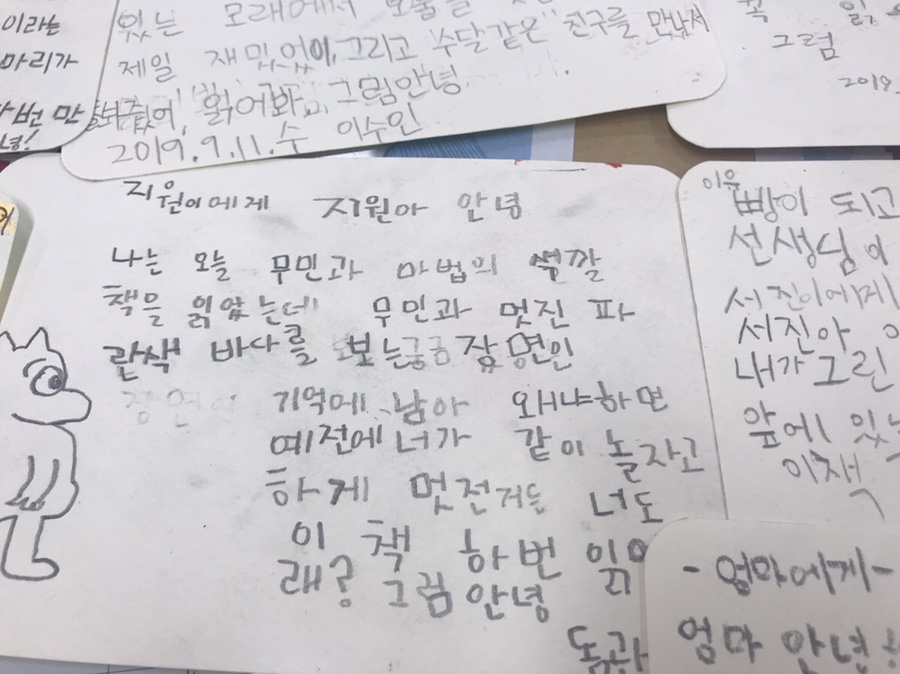 이라는
마리가
번 만
녕!
있는 모래에서 보물을
제일 재밌었어, 그리고 수달같은 친구를 만나서
읽어봐, 그럼안녕
2019.9.11.수 이수인
꼭 읽
그럼
2019.
지원이에게 지원아 안녕
나는 오늘 무민과 마법의 색깔
책을 읽았는데 무민과 멋진 파
란색 바다를 보는 장면인
기억에 남아 왜냐하면
예전에 너가 같이 놀자고
하게 멋전거든 너도
이 책 하번 읽으
래? 그럼 안녕
이유
빵이 되고
선생님이
서진이에게
서진아
내가 그린
앞에 있
이책
-엄마에게-
엄마 안녕